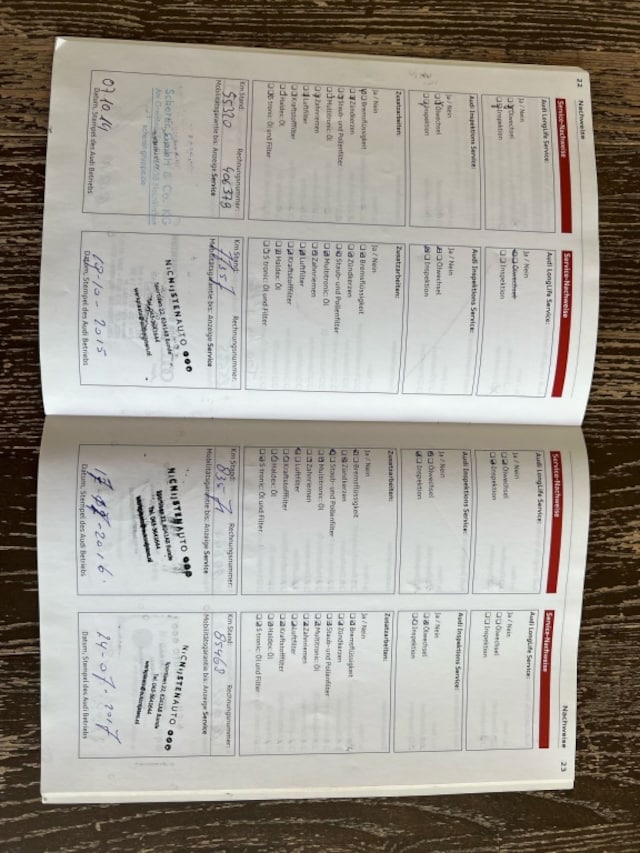 22 Nachweise
Service-Nachweise
Audi LongLife Service:
Ja / Nein
Ölwechsel
Inspektion
Audi Inspektions Service:
Ja / Nein
Ölwechsel
Inspektion
Zusatzarbeiten:
Ja / Nein
Bremsflüssigkeit
Zündkerzen
Staub- und Pollenfilter
Multitronic Öl
Zahnriemen
Luftfilter
Kraftstofffilter
Haldex: Öl
S tronic: Öl und Filter
Km Stand: Rechnungsnummer:
55320 406378
Mobilitätsgarantie bis: Anzeige Service
07.10.14
Datum, Stempel des Audi Betriebs
Service-Nachweise
Audi LongLife Service:
Ja / Nein
Ölwechsel
Inspektion
Audi Inspektions Service:
Ja / Nein
Ölwechsel
Inspektion
Zusatzarbeiten:
Ja / Nein
Bremsflüssigkeit
Zündkerzen
Staub- und Pollenfilter
Multitronic: Öl
Zahnriemen
Luftfilter
Kraftstofffilter
Haldex: Öl
S tronic: Öl und Filter
Km Stand: Rechnungsnummer:
Mobilitätsgarantie bis: Anzeige Service
NICHIJSTENAUTO
2015
Datum, Stempel des Audi Betriebs
Service-Nachweise
Audi LongLife Service:
Ja / Nein
Ölwechsel
Inspektion
Audi Inspektions Service:
Ja / Nein
Ölwechsel
Inspektion
Zusatzarbeiten:
Ja / Nein
Bremsflüssigkeit
Zündkerzen
Staub- und Pollenfilter
Multitronic: Öl
Zahnriemen
Luftfilter
Kraftstofffilter
Haldex: Öl
S tronic: Öl und Filter
Km Stand: Rechnungsnummer:
Mobilitätsgarantie bis: Anzeige Service
NICHIJSTENAUTO
2016
Datum, Stempel des Audi Betriebs
Nachweise 23
Service-Nachweise
Audi LongLife Service:
Ja / Nein
Ölwechsel
Inspektion
Audi Inspektions Service:
Ja / Nein
Ölwechsel
Inspektion
Zusatzarbeiten:
Ja / Nein
Bremsflüssigkeit
Zündkerzen
Staub- und Pollenfilter
Multitronic: Öl
Zahnriemen
Luftfilter
Kraftstofffilter
Haldex: Öl
S tronic: Öl und Filter
Km Stand: Rechnungsnummer:
85468
Mobilitätsgarantie bis: Anzeige Service
NICHIJSTENAUTO
24-07-2017
Datum, Stempel des Audi Betriebs